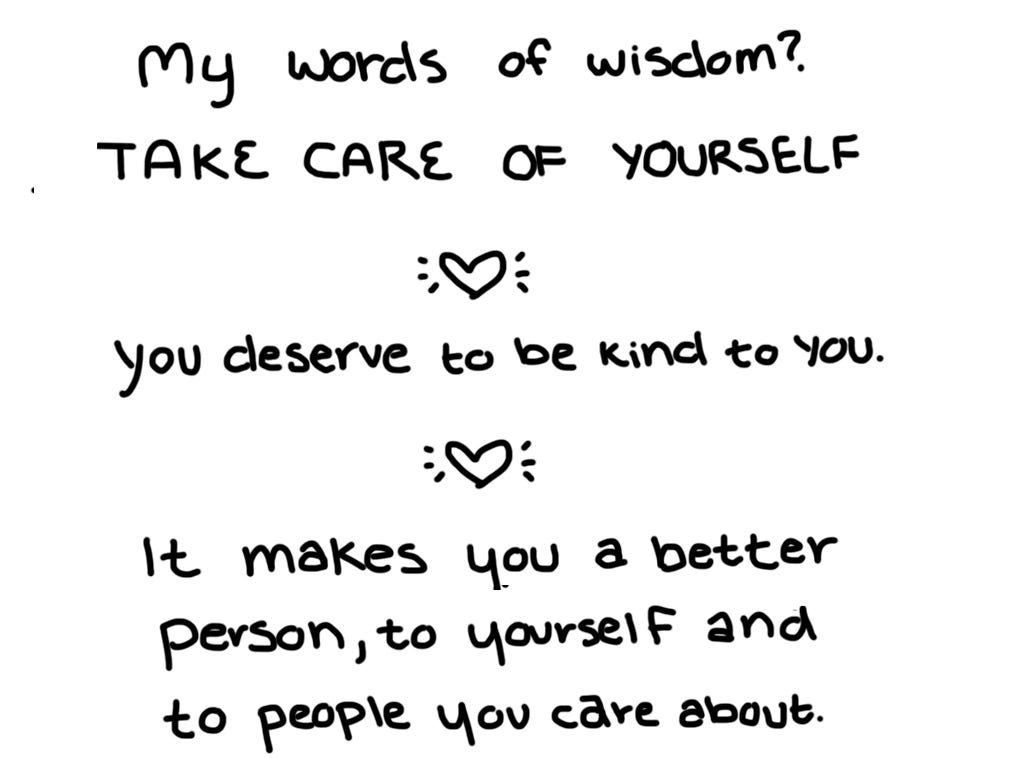 My words of wisdom?
TAKE CARE OF YOURSELF
you deserve to be kind to you.
It makes you a better
person, to yourself and
to people you care about.